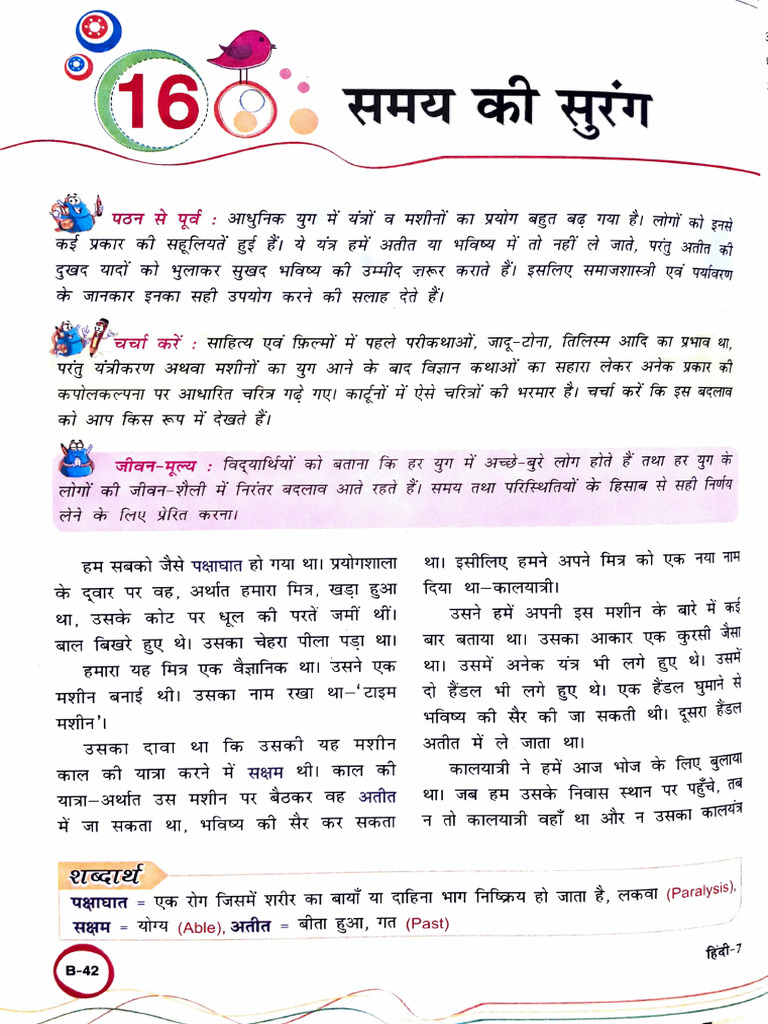 16
समय की सुरंग
पठन से पूर्व : आधुनिक युग में यंत्रों व मशीनों का प्रयोग बहुत बढ़ गया है। लोगों को इनसे
कई प्रकार की सहूलियतें हुई हैं। ये यंत्र हमें अतीत या भविष्य में तो नहीं ले जाते, परंतु अतीत की
दुखद यादों को भुलाकर सुखद भविष्य की उम्मीद ज़रूर कराते हैं। इसलिए समाजशास्त्री एवं पर्यावरण
के जानकार इनका सही उपयोग करने की सलाह देते हैं।
चर्चा करें : साहित्य एवं फ़िल्मों में पहले परीकथाओं, जादू-टोना, तिलिस्म आदि का प्रभाव था,
परंतु यंत्रीकरण अथवा मशीनों का युग आने के बाद विज्ञान कथाओं का सहारा लेकर अनेक प्रकार की
कपोलकल्पना पर आधारित चरित्र गढ़े गए। कार्टूनों में ऐसे चरित्रों की भरमार है। चर्चा करें कि इस बदलाव
को आप किस रूप में देखते हैं।
जीवन-मूल्य : विद्यार्थियों को बताना कि हर युग में अच्छे-बुरे लोग होते हैं तथा हर युग के
लोगों की जीवन-शैली में निरंतर बदलाव आते रहते हैं। समय तथा परिस्थितियों के हिसाब से सही निर्णय
लेने के लिए प्रेरित करना।
हम सबको जैसे पक्षाघात हो गया था। प्रयोगशाला
के द्वार पर वह, अर्थात हमारा मित्र, खड़ा हुआ
था, उसके कोट पर धूल की परतें जमीं थीं।
बाल बिखरे हुए थे। उसका चेहरा पीला पड़ा था।
हमारा यह मित्र एक वैज्ञानिक था। उसने एक
मशीन बनाई थी। उसका नाम रखा था–‘टाइम
मशीन’।
उसका दावा था कि उसकी यह मशीन
काल की यात्रा करने में सक्षम थी। काल की
यात्रा–अर्थात उस मशीन पर बैठकर वह अतीत
में जा सकता था, भविष्य की सैर कर सकता
था। इसीलिए हमने अपने मित्र को एक नया नाम
दिया था–कालयात्री।
उसने हमें अपनी इस मशीन के बारे में कई
बार बताया था। उसका आकार एक कुरसी जैसा
था। उसमें अनेक यंत्र भी लगे हुए थे। उसमें
दो हैंडल भी लगे हुए थे। एक हैंडल घुमाने से
भविष्य की सैर की जा सकती थी। दूसरा हैंडल
अतीत में ले जाता था।
कालयात्री ने हमें आज भोज के लिए बुलाया
था। जब हम उसके निवास स्थान पर पहुँचे, तब
न तो कालयात्री वहाँ था और न उसका कालयंत्र
शब्दार्थ
पक्षाघात = एक रोग जिसमें शरीर का बायाँ या दाहिना भाग निष्क्रिय हो जाता है, लकवा (Paralysis),
सक्षम = योग्य (Able), अतीत = बीता हुआ, गत (Past)
B-42
हिंदी-7